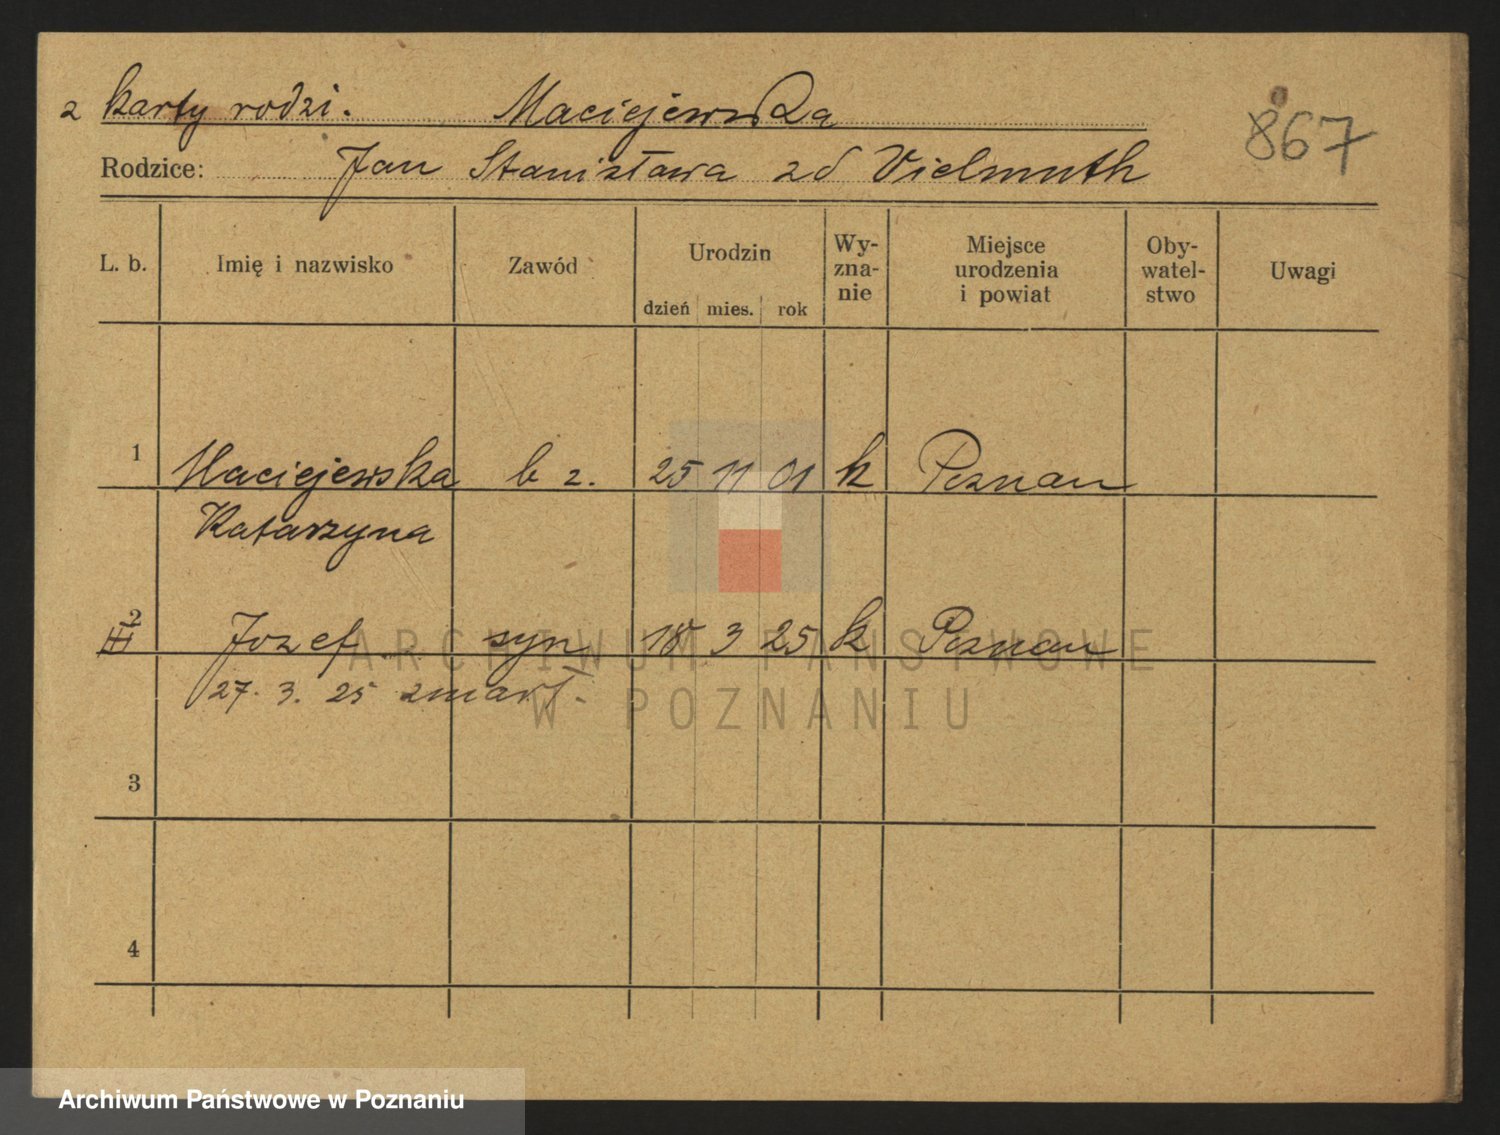 z karty rodzi. Maciejewska
867
Rodzice: Jan Stanisława zd Vielmuth
L. b. Imię i nazwisko Zawód Urodzin dzień mies. rok Wy-zna-nie Miejsce urodzenia i powiat Oby-watel-stwo Uwagi
1 Maciejewska b z. 25 11 01 k Poznan
Katarzyna
2 III Jozef syn 18 3 25 k Poznan
27. 3. 25 zmarł.
3
4
ARCHIWUM PAŃSTWOWE
W POZNANIU
Archiwum Państwowe w Poznaniu